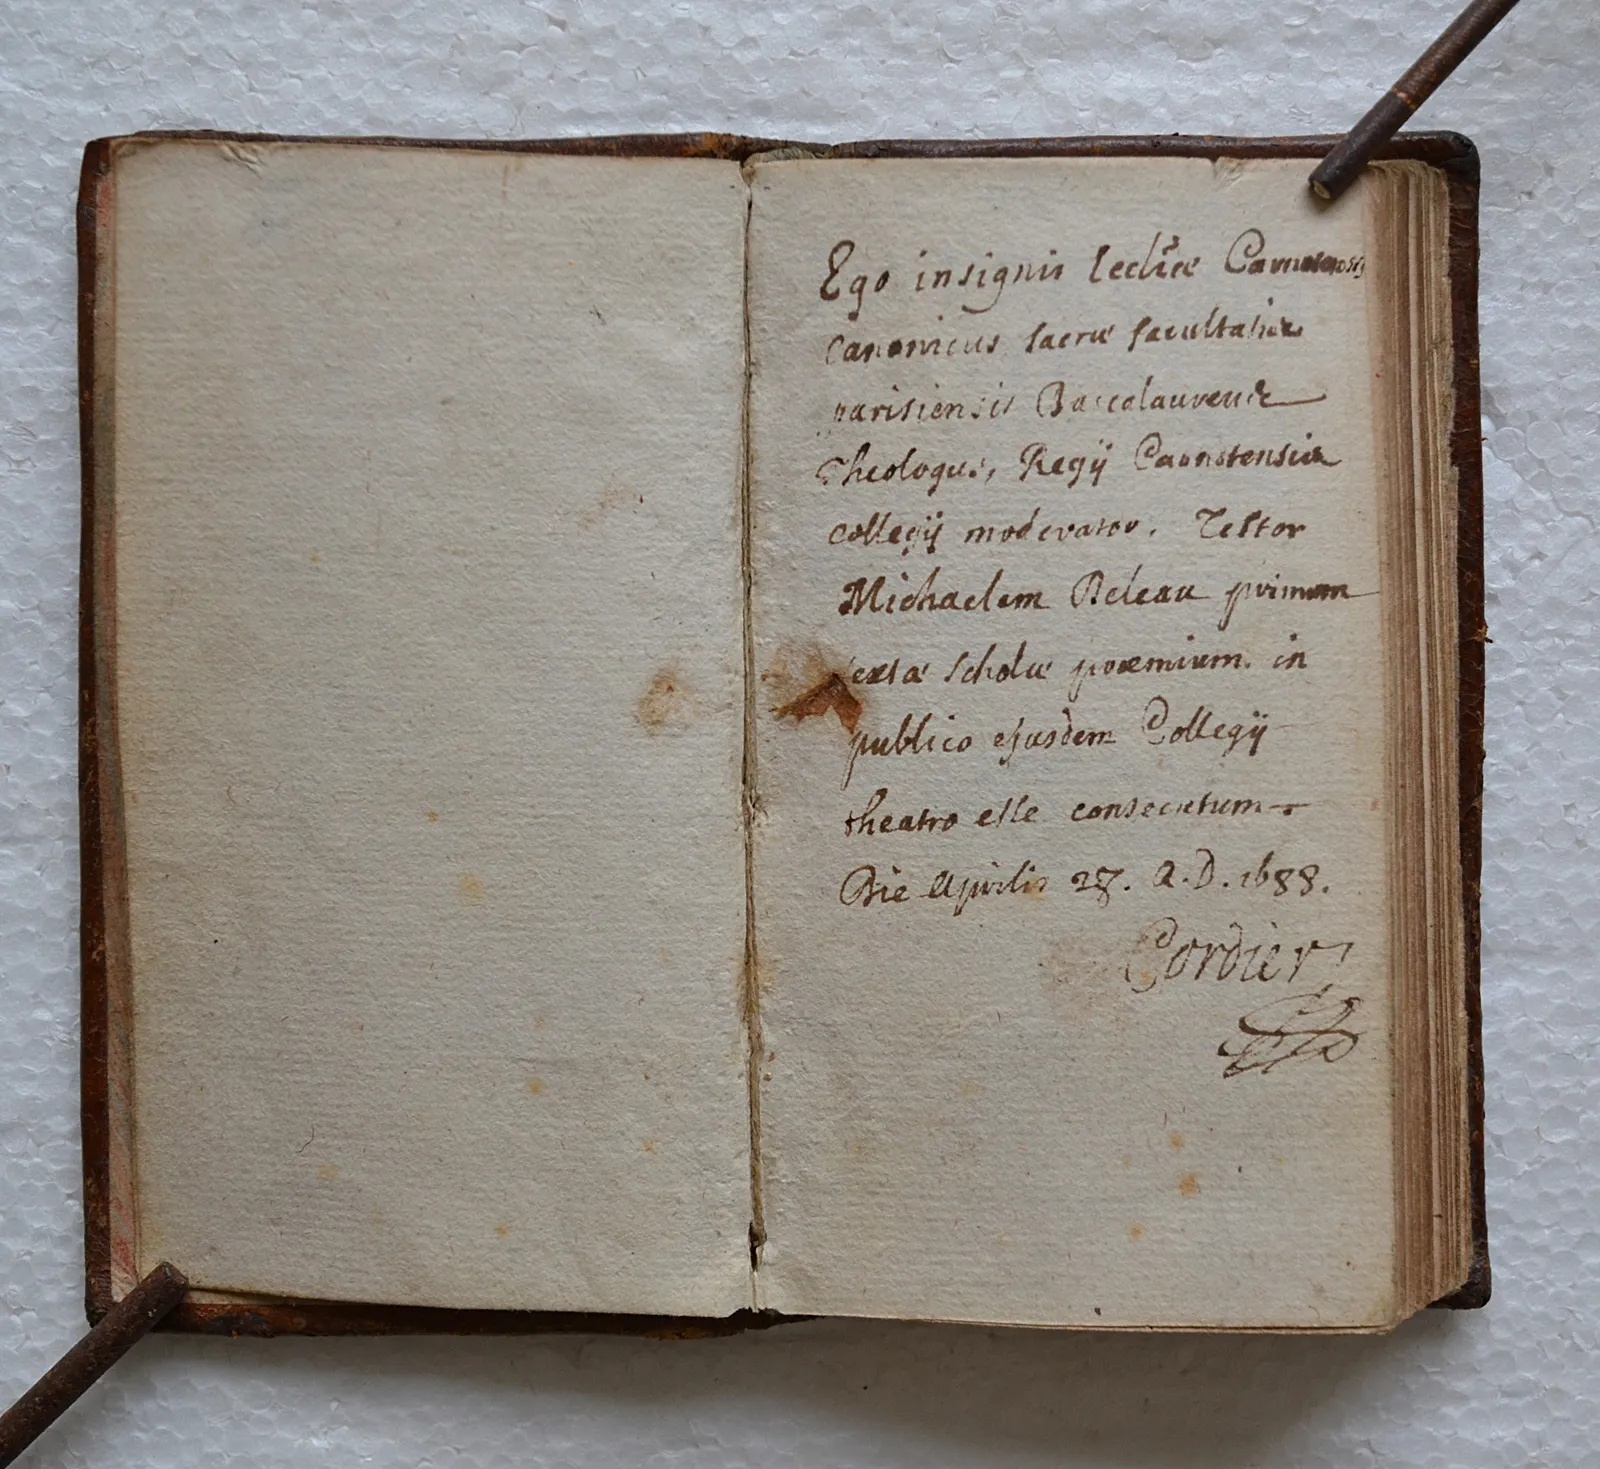 Ego insignis Ecclesiæ Carnotensis
Canonicus sacræ facultatis
parisiensis Baccalaureus
Theologus, Regij Carnotensis
Collegij moderator. Testor
Michaelem Beleau primum
sextæ scholæ præmium in
publico ejusdem Collegij
theatro esse consecutum
Die Aprilis 27. A.D. 1688.
Cordier